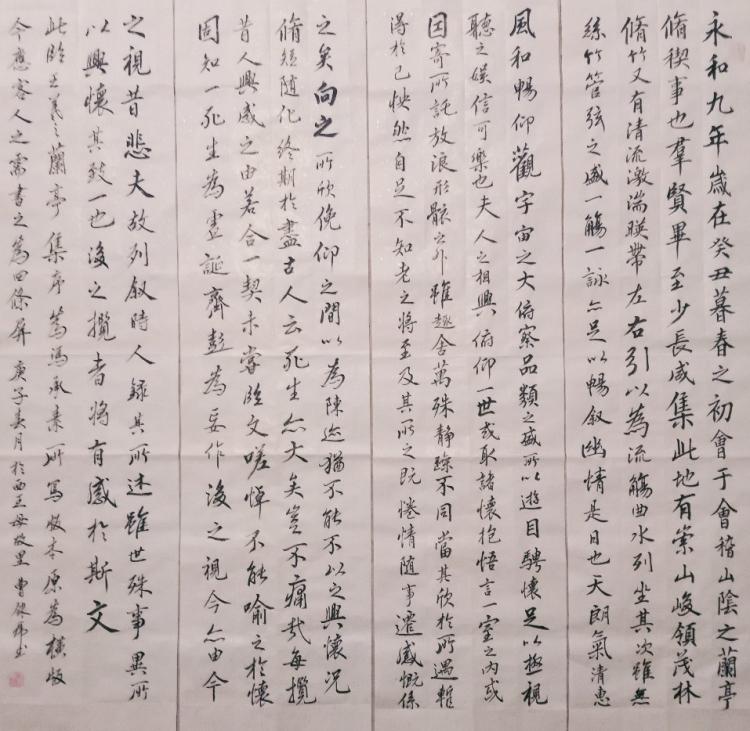 永和九年歲在癸丑暮春之初會于會稽山陰之蘭亭
脩稧事也羣賢畢至少長咸集此地有崇山峻領茂林
脩竹又有清流激湍暎帶左右引以為流觴曲水列坐其次雖無
絲竹管弦之盛一觴一詠亦足以暢叙幽情是日也天朗氣清惠
風和暢仰觀宇宙之大俯察品類之盛所以遊目騁懷足以極視
聽之娛信可樂也夫人之相與俯仰一世或取諸懷抱悟言一室之內或
因寄所託放浪形骸之外雖趣舍萬殊静躁不同當其欣於所遇暫
得於己怏然自足不知老之將至及其所之既惓情隨事遷感慨係
之矣向之所欣俛仰之間以為陳迹猶不能不以之興懷況
脩短隨化終期於盡古人云死生亦大矣豈不痛哉每攬
昔人興感之由若合一契未嘗臨文嗟悼不能喻之於懷
固知一死生為虛誕齊彭為妄作後之視今亦由今
之視昔悲夫故列叙時人錄其所述雖世殊事異所
以興懷其致一也後之攬者將有感於斯文
此臨王羲之蘭亭集序為馮承素所寫版本原為橫版
今應客人之需書之為四條屏庚子春月於西王母故里曹